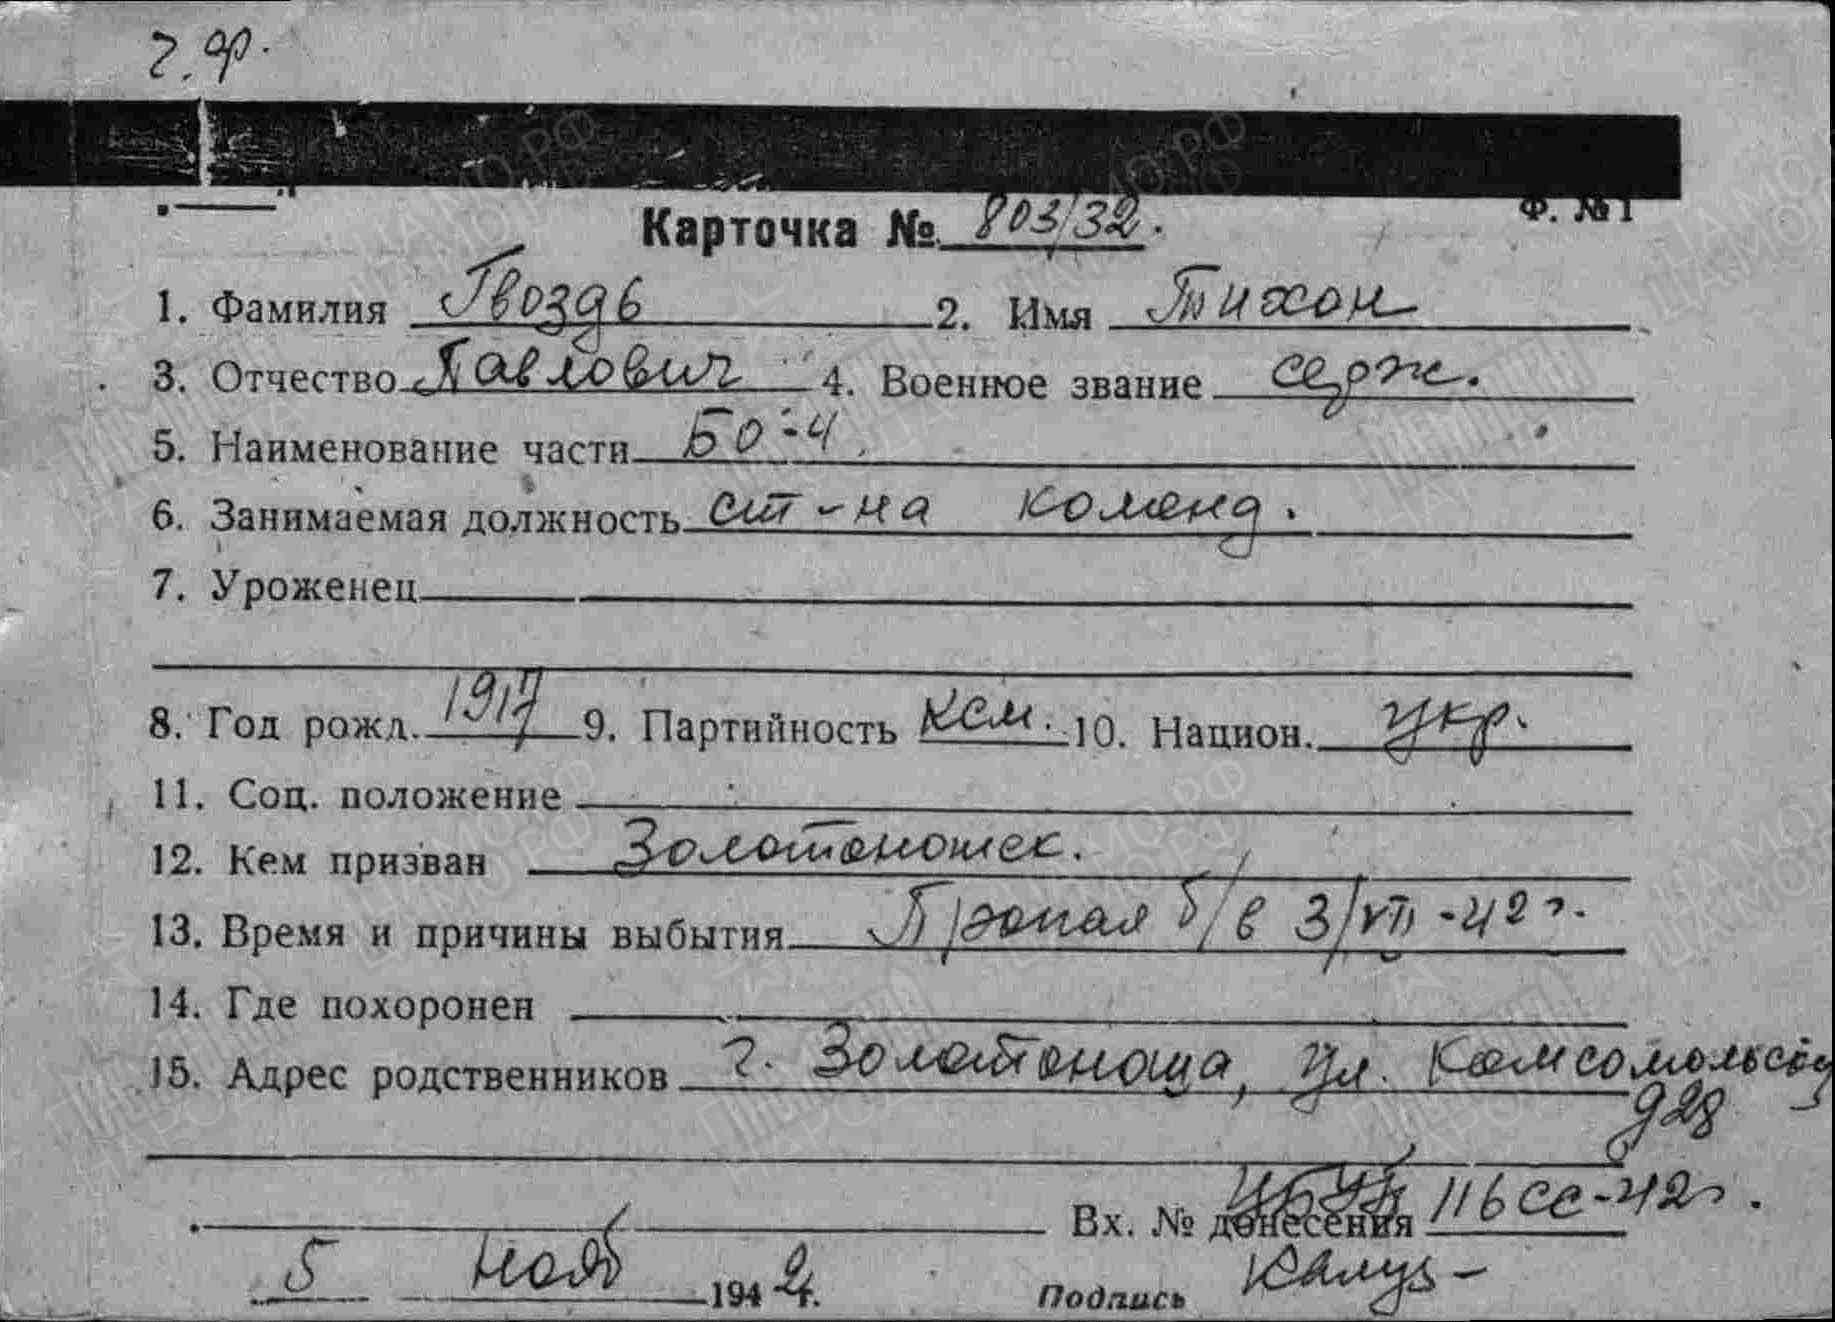 ч. ф.
Ф. №1
Карточка № 803/32.
1. Фамилия Гвоздь 2. Имя Тихон
3. Отчество Павлович 4. Военное звание серж.
5. Наименование части БО-4
6. Занимаемая должность ст-на команд.
7. Уроженец
8. Год рожд. 1917 9. Партийность ксм. 10. Национ. укр.
11. Соц. положение
12. Кем призван Золотоношск.
13. Время и причины выбытия Пропал б/в 3/VII-42 г.
14. Где похоронен
15. Адрес родственников г. Золотоноша, ул. Комсомольск
д 28
Вх. № донесения 116 сс-42 г.
5 нояб 1942 г. Подпись